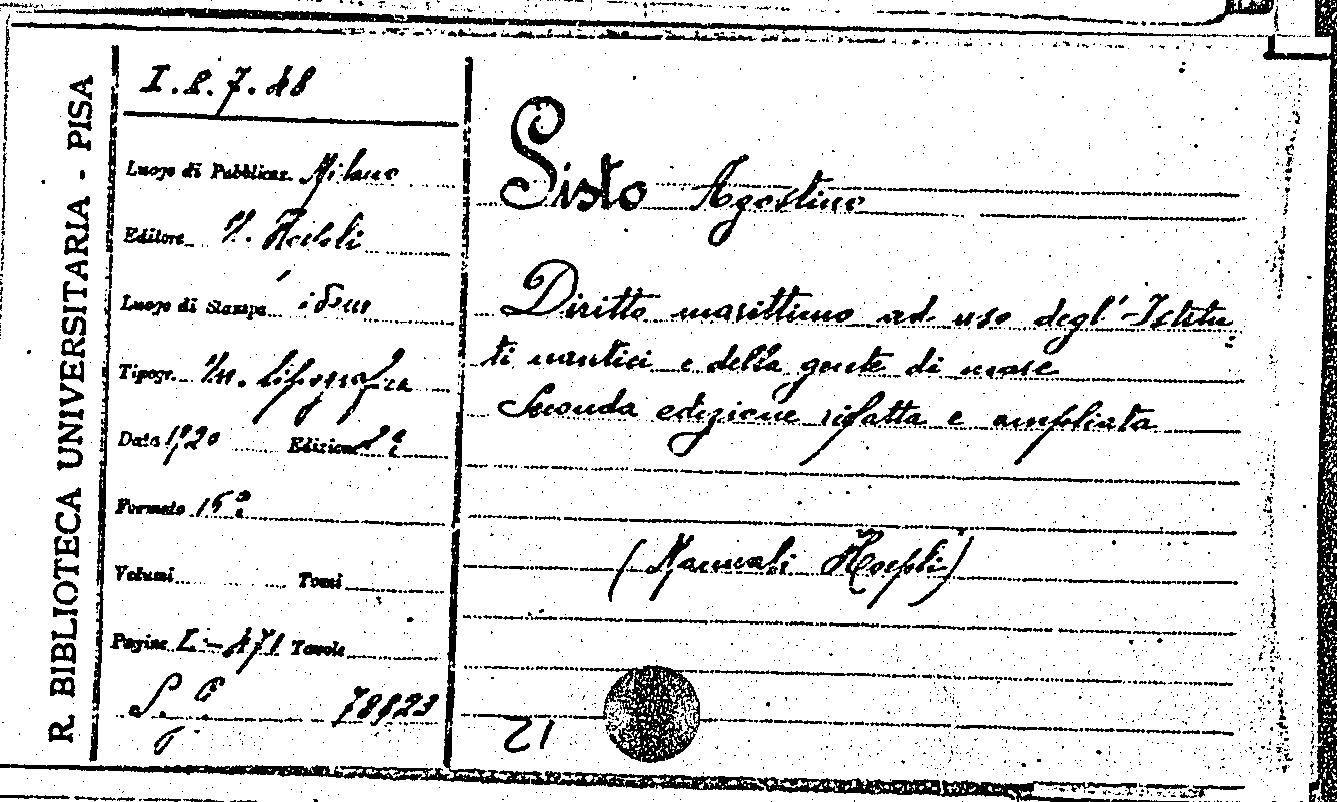 R. BIBLIOTECA UNIVERSITARIA - PISA
I. 2. 7. 48
Luogo di Pubblicaz. Milano
Editore U. Hoepli
Luogo di Stampa idem
Tipogr. Un. tipografica
Data 1920 Edizione 2ª
Formato 16º
Volumi Tomi
Pagine L-471 Tavole
S. G. 78823
Sisto Agostino
Diritto marittimo ad uso degl'Istitu
ti nautici e della gente di mare
Seconda edizione rifatta e ampliata
(Manuali Hoepli)